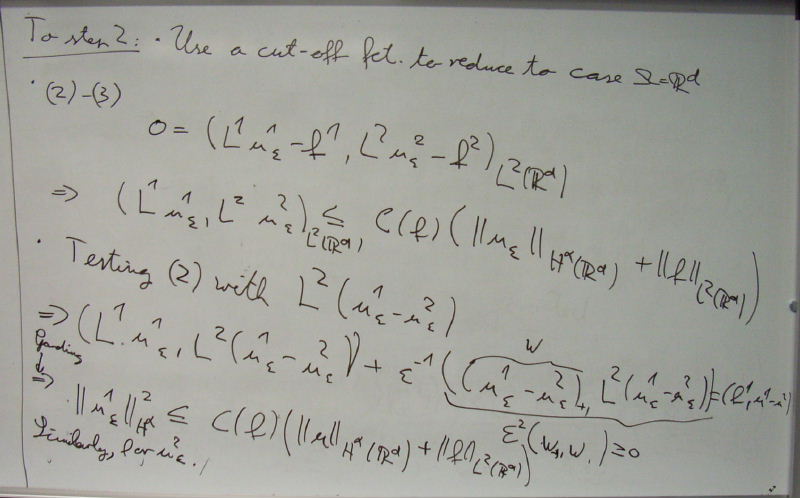 To step 2: · Use a cut-off fct. to reduce to case Ω=ℝᵈ
· (2)-(3)
0 = (L¹u¹_ε - f¹, L²u²_ε - f²)_{L²(ℝᵈ)}
=> (L¹u¹_ε, L² u²_ε)_{L²(ℝᵈ)} ≤ C(f) (||u_ε||_{H^α(ℝᵈ)} + ||f||_{L²(ℝᵈ)})
· Testing (2) with L²(u¹_ε - u²_ε)
=> (L¹u¹_ε, L²(u¹_ε - u²_ε)) + ε⁻¹ ((u¹_ε - u²_ε)₊, L²(u¹_ε - u²_ε)) = (f¹, u¹-u²)
w
Gårding
↓
=> ||u¹_ε||²_{H^α} ≤ C(f) (||u||_{H^α(ℝᵈ)} + ||f||_{L²(ℝᵈ)})
ε²(w₊, w.) ≥ 0
Similarly, for u²_ε.